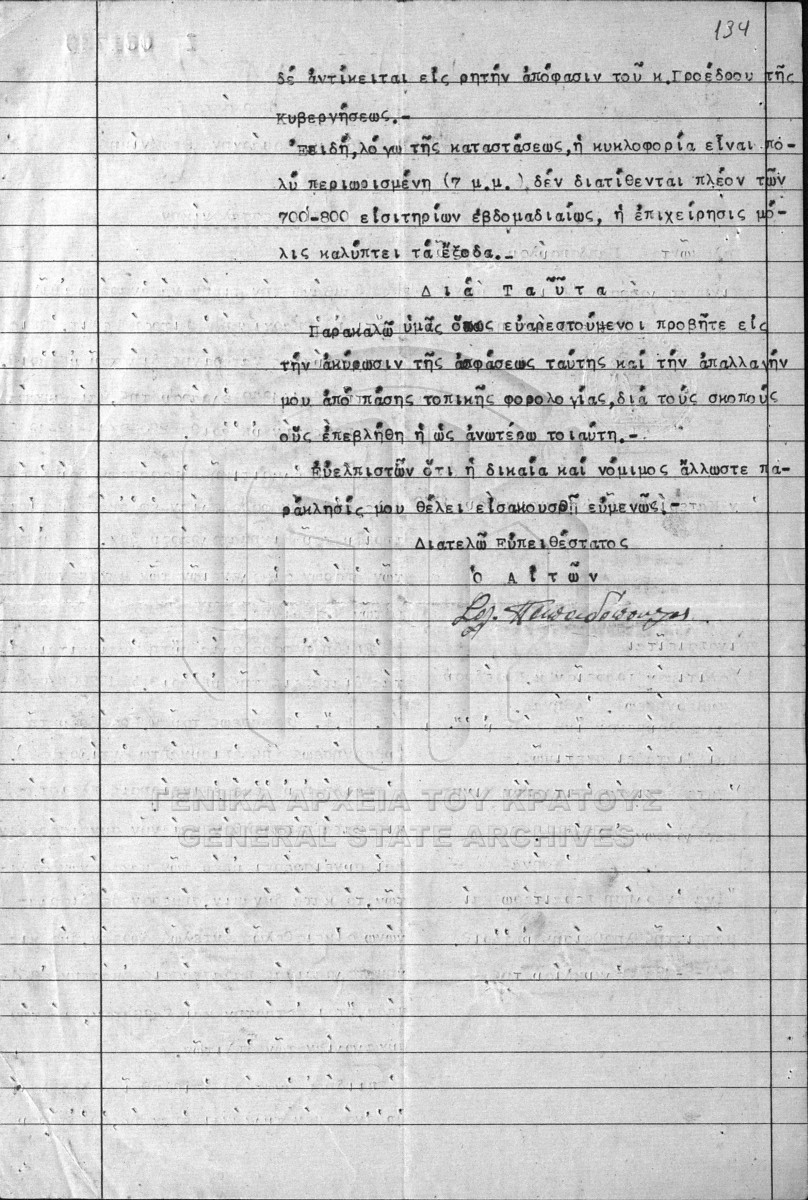 134
δέ ἀντίκειται εἰς ρητήν ἀπόφασιν τοῦ κ.Προέδρου τῆς
Κυβερνήσεως.-
Ἐπειδή,λόγω τῆς καταστάσεως,ἡ κυκλοφορία εἶναι πο-
λύ περιωρισμένη (7 μ.μ.) δέν διατίθενται πλέον τῶν
700-800 εἰσιτηρίων ἑβδομαδιαίως, ἡ ἐπιχείρησις μό-
λις καλύπτει τά ἔξοδα.-
Δ ι ά Τ α ῦ τ α
Παρακαλῶ ὑμᾶς ὅπως εὐαρεστούμενοι προβῆτε εἰς
τήν ἀκύρωσιν τῆς ἀπφάσεως ταύτης καί τήν ἀπαλλαγήν
μου ἀπό πάσης τοπικῆς φορολογίας,διά τούς σκοπούς
οὕς ἐπεβλήθη ἡ ὡς ἀνωτέρω τοιαύτη.-
Εὐελπιστῶν ὅτι ἡ δικαία καί νόμιμος ἄλλωστε πα-
ράκλησίς μου θέλει εἰσακουσθῆ εὐμενῶς.-
Διατελῶ Εὐπειθέστατος
Ὁ Α ἰ τ ῶ ν
Παπαδόπουλος
ΓΕΝΙΚΑ ΑΡΧΕΙΑ ΤΟΥ ΚΡΑΤΟΥΣ
GENERAL STATE ARCHIVES